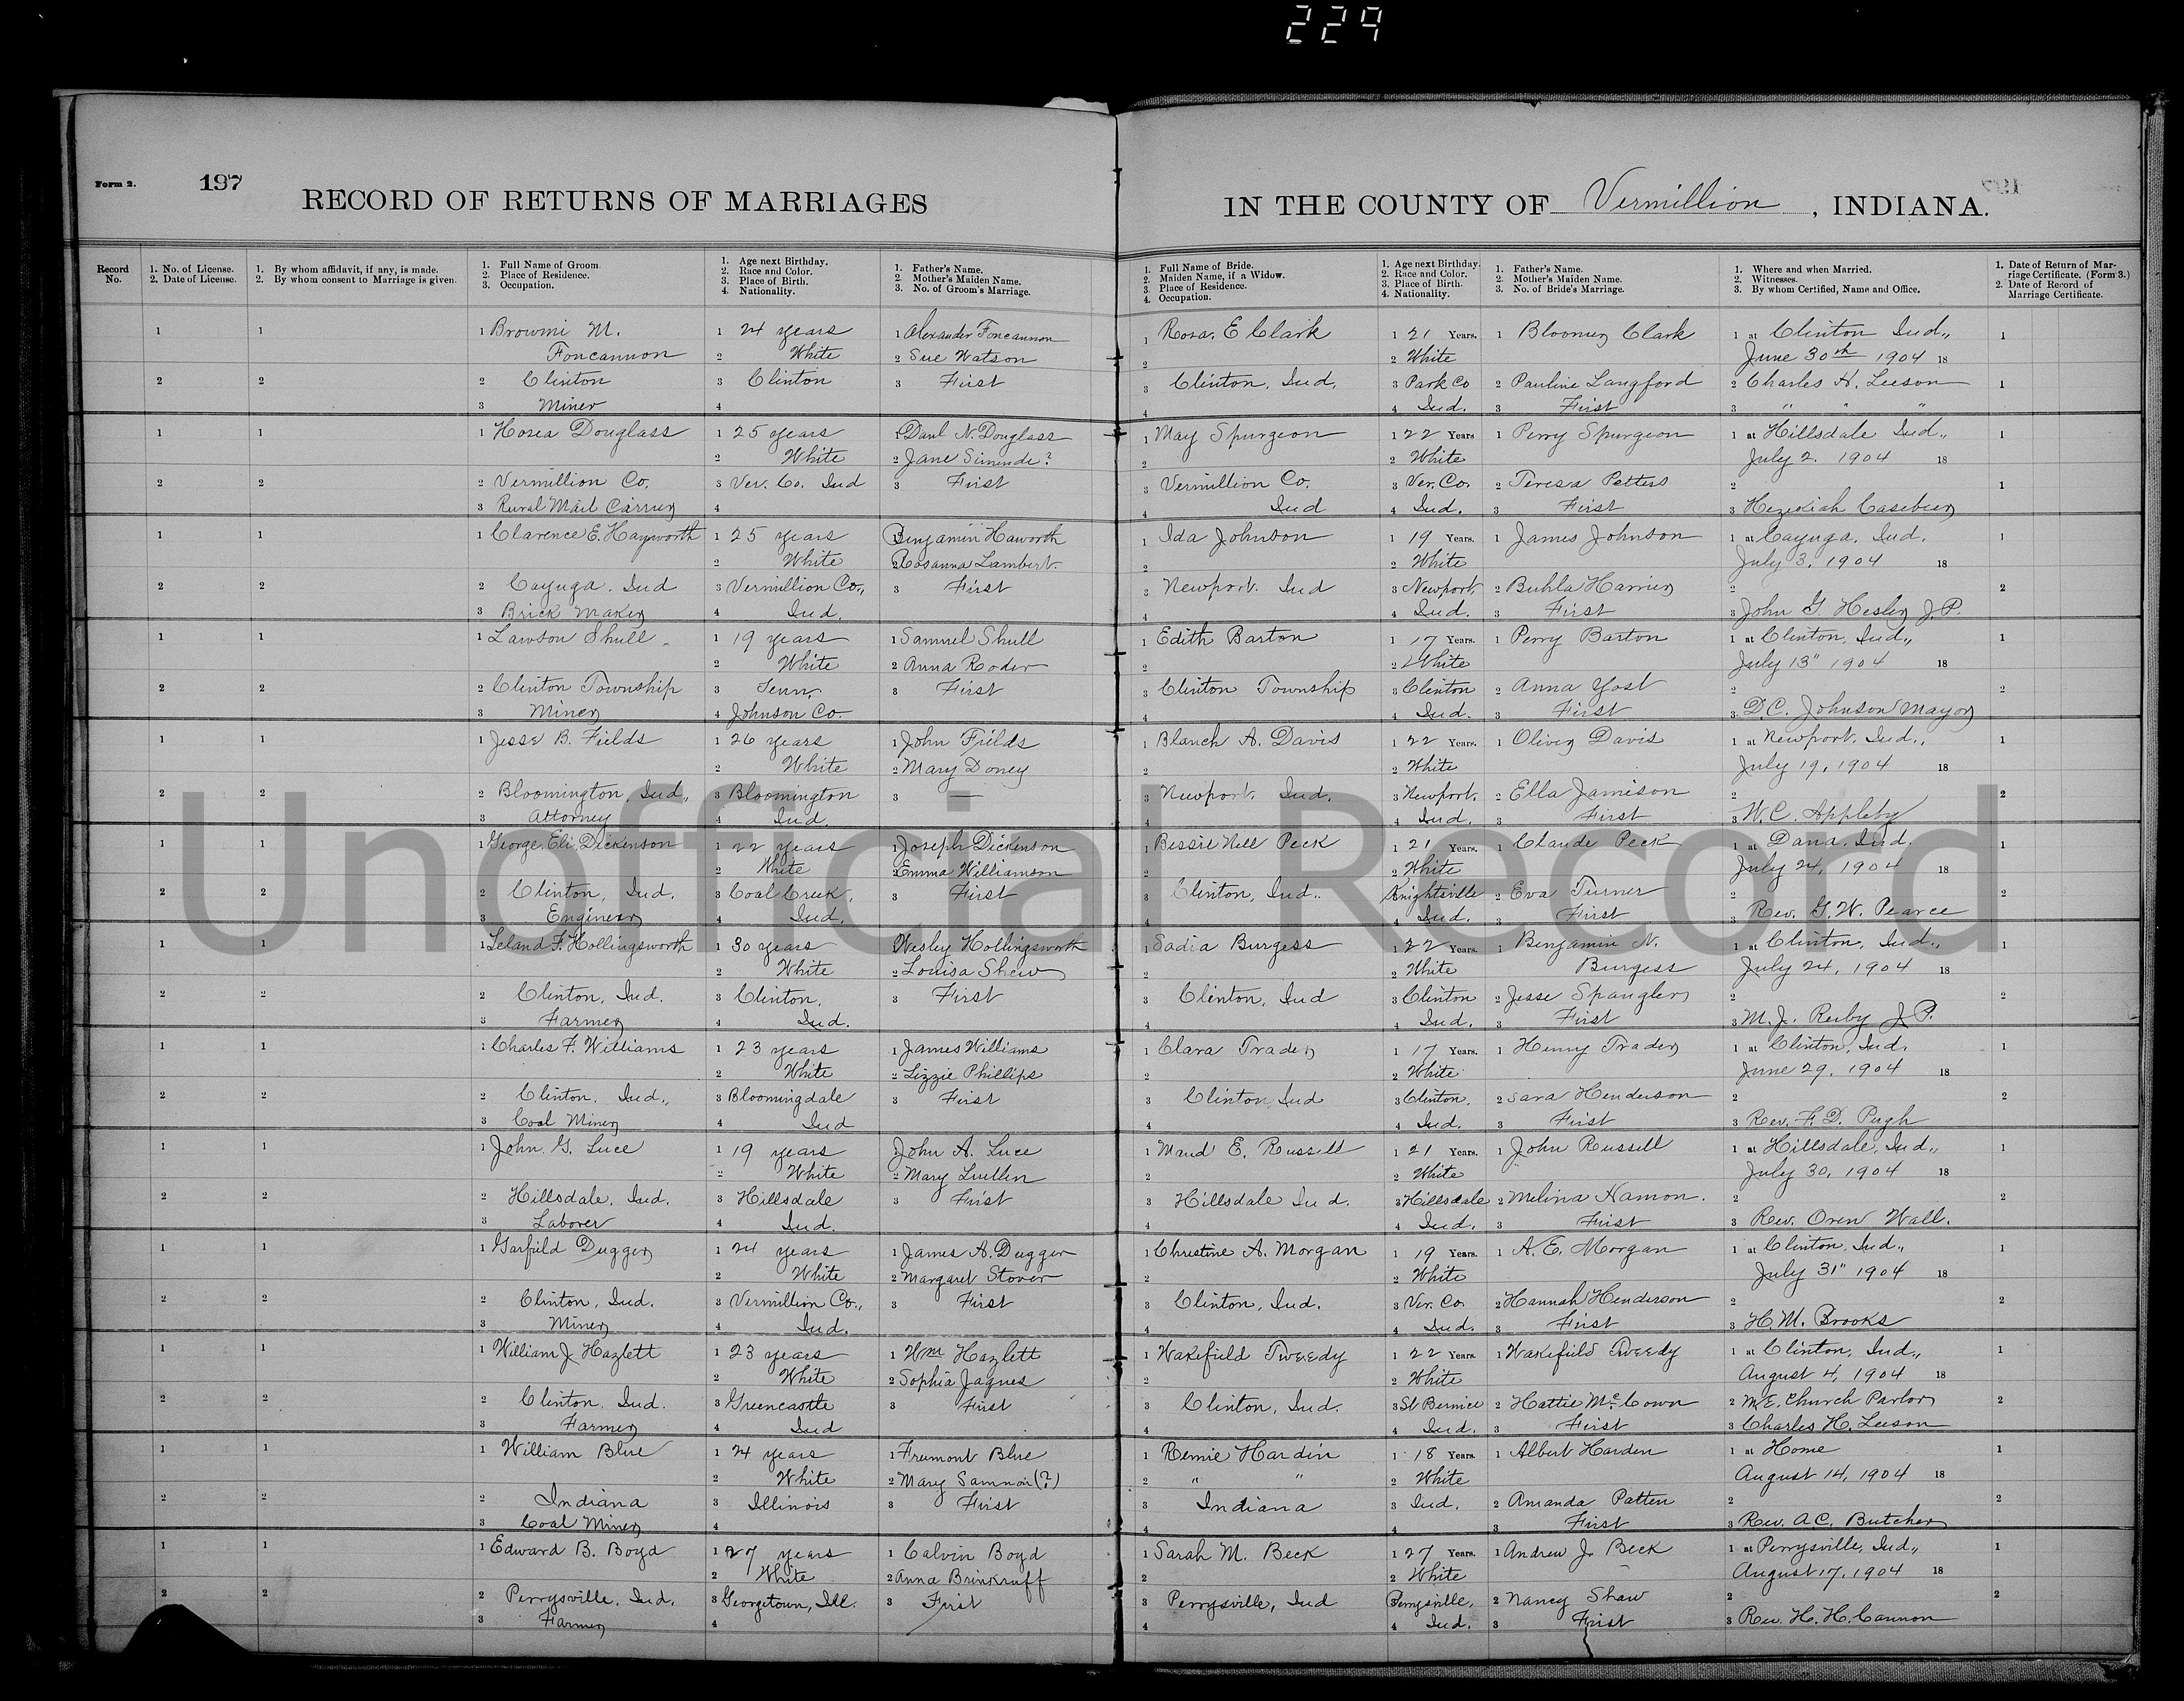 229
Form 2.
197
RECORD OF RETURNS OF MARRIAGES
IN THE COUNTY OF Vermillion, INDIANA.
Record No.
1. No. of License.
2. Date of License.
1. By whom affidavit, if any, is made.
2. By whom consent to Marriage is given.
1. Full Name of Groom
2. Place of Residence.
3. Occupation.
1. Age next Birthday.
2. Race and Color.
3. Place of Birth.
4. Nationality.
1. Father's Name.
2. Mother's Maiden Name.
3. No. of Groom's Marriage.
1. Full Name of Bride.
2. Maiden Name, if a Widow.
3. Place of Residence.
4. Occupation.
1. Age next Birthday.
2. Race and Color.
3. Place of Birth.
4. Nationality.
1. Father's Name.
2. Mother's Maiden Name.
3. No. of Bride's Marriage.
1. Where and when Married.
2. Witnesses.
3. By whom Certified, Name and Office.
1. Date of Return of Marriage Certificate. (Form 3.)
2. Date of Record of Marriage Certificate.
1 Browmi M. 1 24 years 1 Alexander Foncannon 1 Rosa. E Clark 1 21 Years. 1 Bloomer Clark 1 at Clinton Ind.,
Foncannon 2 White 2 Sue Watson 2 2 White June 30th 1904 18
2 Clinton 3 Clinton 3 First 3 Clinton, Ind. 3 Park Co 2 Pauline Langford 2 Charles H. Leeson
3 Miner 4 4 4 Ind. 3 First 3 " " "
1 Hosea Douglass 1 25 years 1 Danl N. Douglass 1 May Spurgeon 1 22 Years 1 Perry Spurgeon 1 at Hillsdale Ind.,
2 White 2 Jane Simmde? 2 2 White July 2. 1904 18
2 Vermillion Co. 3 Ver. Co. Ind 3 First 3 Vermillion Co. 3 Ver. Co. 2 Teresa Petters 2
3 Rural Mail Carrier 4 4 Ind 4 Ind. 3 First 3 Hezekiah Casebeer
1 Clarence E. Hayworth 1 25 years 1 Benjamin Haworth 1 Ida Johnson 1 19 Years. 1 James Johnson 1 at Cayuga, Ind.
2 White 2 Rosanna Lambert. 2 2 White July 3, 1904 18
2 Cayuga. Ind 3 Vermillion Co., 3 First 3 Newport. Ind 3 Newport, 2 Buhla Harrier 2
3 Brick Maker 4 Ind. 4 4 Ind. 3 First 3 John G Hesler J.P.
1 Lawson Shull 1 19 years 1 Samuel Shull 1 Edith Barton 1 17 Years. 1 Perry Barton 1 at Clinton, Ind.,
2 White 2 Anna Roder 2 2 White July 13" 1904 18
2 Clinton Township 3 Tenn. 3 First 3 Clinton Township 3 Clinton 2 Anna Yost 2
3 Miner 4 Johnson Co. 4 4 Ind. 3 First 3 D.C. Johnson Mayor
1 Jesse B. Fields 1 26 years 1 John Fields 1 Blanch A. Davis 1 22 Years. 1 Oliver Davis 1 at Newport. Ind.,
2 White 2 Mary Doney 2 2 White July 19, 1904 18
2 Bloomington, Ind., 3 Bloomington 3 — 3 Newport. Ind. 3 Newport. 2 Ella Jamison 2
3 Attorney 4 Ind. 4 4 Ind. 3 First 3 W.C. Appleby
1 George. Eli. Dickenson 1 22 years 1 Joseph Dickenson 1 Bessie Nell Peck 1 21 Years. 1 Claude Peck 1 at Dana. Ind.
2 White 2 Emma Williamson 2 2 White July 24, 1904 18
2 Clinton, Ind. 3 Coal Creek, 3 First 3 Clinton, Ind.. Knightsville 2 Eva Turner 2
3 Engineer 4 Ind. 4 4 Ind. 3 First 3 Rev. G.W. Pearce
1 Leland F. Hollingsworth 1 30 years 1 Wesley Hollingsworth 1 Sadia Burgess 1 22 Years. 1 Benjamin N. 1 at Clinton, Ind.,
2 White 2 Louisa Shew 2 2 White Burgess July 24, 1904 18
2 Clinton, Ind. 3 Clinton, 3 First 3 Clinton, Ind 3 Clinton 2 Jesse Spangler 2
3 Farmer 4 Ind. 4 4 Ind. 3 First 3 M.J. Ruby J P.
1 Charles F. Williams 1 23 years 1 James Williams 1 Clara Trader 1 17 Years. 1 Henry Trader 1 at Clinton, Ind.
2 White 2 Lizzie Phillips 2 2 White June 29, 1904 18
2 Clinton. Ind., 3 Bloomingdale 3 First 3 Clinton, Ind 3 Clinton, 2 Sara Henderson 2
3 Coal Miner 4 Ind 4 4 Ind. 3 First 3 Rev. F. D. Pugh
1 John. G. Luce 1 19 years 1 John A. Luce 1 Maud E. Russell 1 21 Years. 1 John Russell 1 at Hillsdale, Ind.,
2 White 2 Mary Luellen 2 2 White July 30, 1904 18
2 Hillsdale, Ind. 3 Hillsdale 3 First 3 Hillsdale Ind. 3 Hillsdale 2 Melina Hamon. 2
3 Laborer 4 Ind. 4 4 Ind. 3 First 3 Rev. Oren Wall.
1 Garfield Dugger 1 24 years 1 James A. Dugger 1 Christine A. Morgan 1 19 Years. 1 A. E. Morgan 1 at Clinton, Ind.,
2 White 2 Margaret Stover 2 2 White July 31" 1904 18
2 Clinton, Ind. 3 Vermillion Co., 3 First 3 Clinton, Ind. 3 Ver. Co. 2 Hannah Henderson 2
3 Miner 4 Ind. 4 4 Ind. 3 First 3 H.M. Brooks
1 William J Hazlett 1 23 years 1 Wm Hazlett 1 Wakefield Tweedy 1 22 Years. 1 Wakefield Tweedy 1 at Clinton, Ind.,
2 White 2 Sophia Jaques 2 2 White August 4, 1904 18
2 Clinton. Ind. 3 Greencastle 3 First 3 Clinton, Ind. 3 St Bernice 2 Hattie McCown 2 M.E. Church Parlor
3 Farmer 4 Ind 4 4 Ind. 3 First 3 Charles H. Leeson
1 William Blue 1 24 years 1 Fremont Blue 1 Remie Hardin 1 18 Years. 1 Albert Harden 1 at Home
2 White 2 Mary Samnon(?) 2 " " 2 White August 14, 1904 18
2 Indiana 3 Illinois 3 First 3 Indiana 3 Ind. 2 Amanda Patten 2
3 Coal Miner 4 4 4 3 First 3 Rev. A.C. Butcher
1 Edward B. Boyd 1 27 years 1 Calvin Boyd 1 Sarah M. Beck 1 27 Years. 1 Andrew J. Beck 1 at Perrysville, Ind.,
2 White 2 Anna Brinkruff 2 2 White August 17, 1904 18
2 Perrysville. Ind. 3 Georgetown, Ill. 3 First 3 Perrysville, Ind Perrysville, 2 Nancy Shaw 2
3 Farmer 4 4 4 Ind. 3 First 3 Rev. H. H. Cannon
Unofficial Record